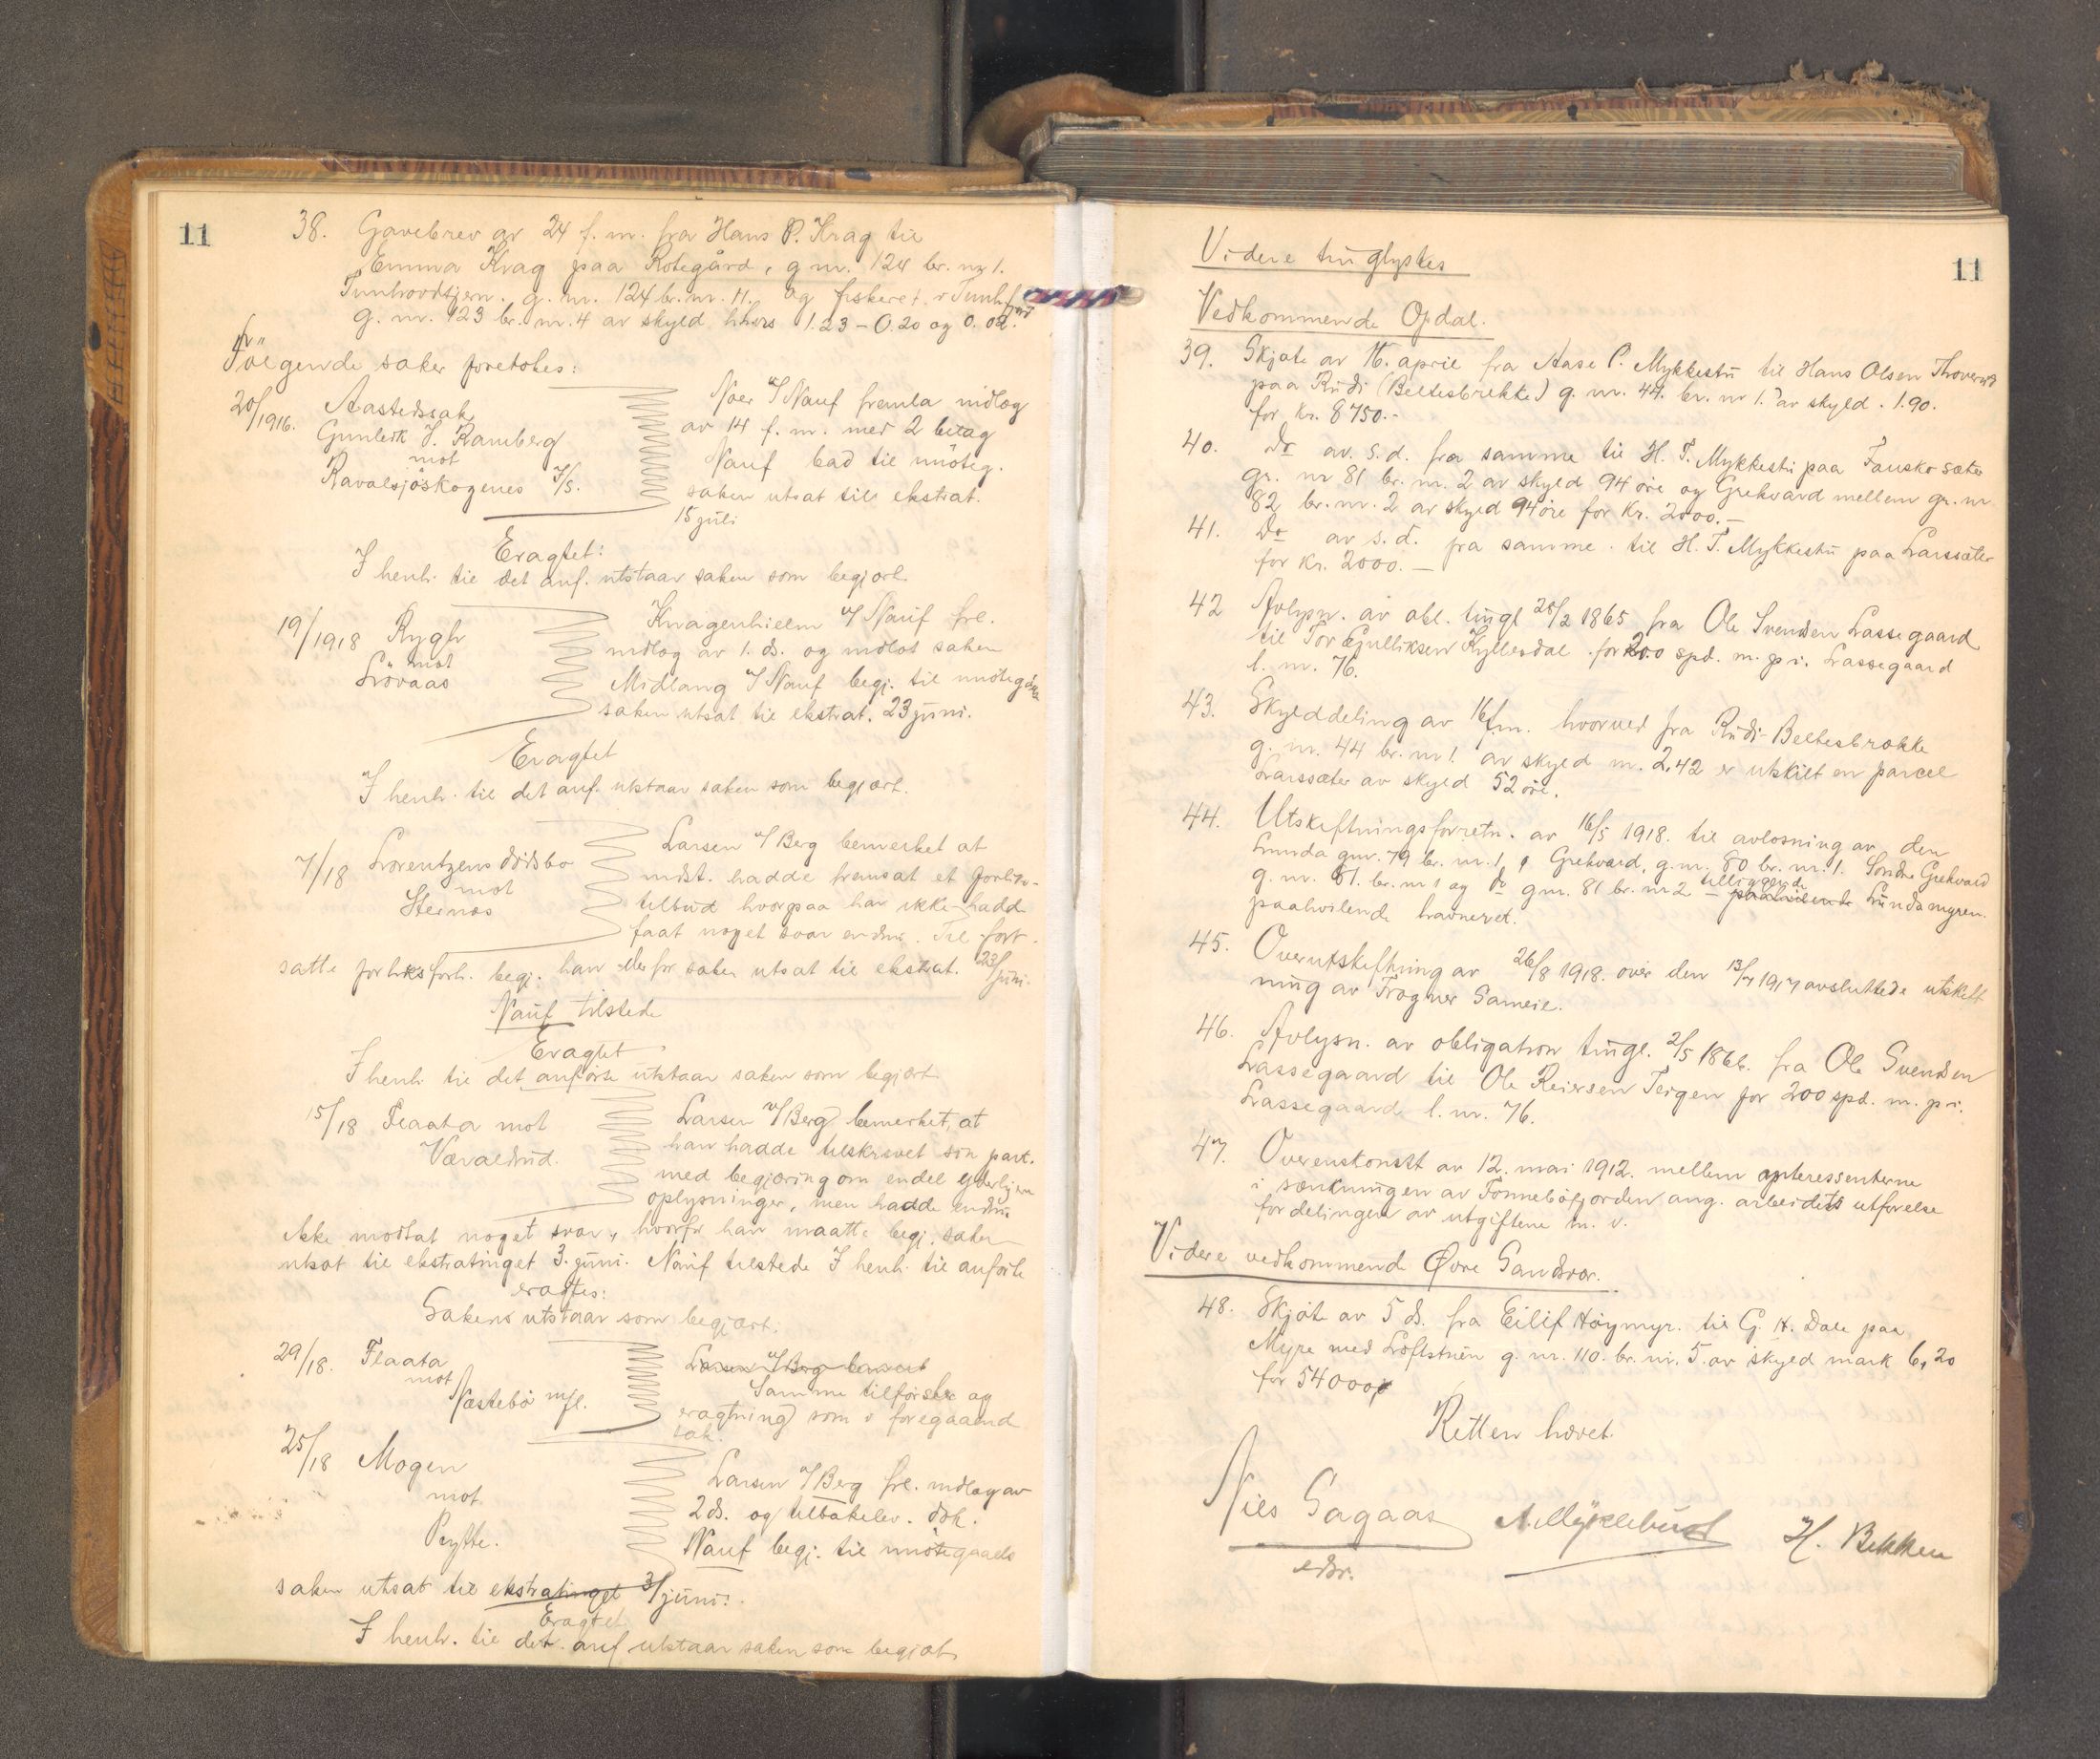 11
38. Gavebrev av 24 f. m. fra Hans P. Krag til
Emma Krag paa Rotegård, g nr. 124 br. nr 1.
Tunhovdtjern. g. nr. 124 br. nr. 11. og fiskeret i Tunhfjord
g. nr. 123 br. nr. 4 av skyld hhvs 1.23 - 0.20 og 0.02.
Følgende saker foretokes:
20/1916. Aastedssak
Gunleik J. Ramberg
mot
Ravalsjöskogenes A/S.
Noer v/ Nauf fremla indlæg
av 14 f. m. med 2 bilag
Nauf bad til imøteg.
saken utsat til ekstrat.
15 juli
Eragtet:
I henh. til det anf. utstaar saken som begjært.
19/1918 Rygh
mot
Lövaas
Knagenhielm v/ Nauf frl.
indlæg av 1. ds. og indlot saken
Midlang v/ Nauf begj. til imøtegåelse
saken utsat til ekstrat. 23 juni.
Eragtet
I henh. til det anf. utstaar saken som begjært.
7/18 Lorentzens dödsbo
mot
Steinas
Larsen v/ Berg bemerket at
indst. hadde fremsat et forliks-
tilbud hvorpaa han ikke hadde
faat noget svar endnu. Til fort-
satte forliksforh. begj. han derfor saken utsat til ekstrat. 23/juni.
Nauf tilstede
Eragtet
I henh. til det anførte utstaar saken som begjært.
15/18 Flaata mot
Væraldrud.
Larsen v/ Berg bemerket, at
han hadde tilskrevet sin part.
med begjæring om endel yderligere
oplysninger, men hadde endnu
ikke mottat noget svar, hvorfor han maatte begj. saken
utsat til ekstratinget 3. juni. Nauf tilstede I henh. til anførte
eragtes:
Saken utstaar som begjært.
29/18. Flaata
mot
Næstebö mfl.
Larsen v/ Berg bemerket
Samme tilførsler og
eragtning som i foregaaende
sak.
25/18 Mogen
mot
Pytte.
Larsen v/ Berg frl. indlæg av
2 ds. og tilbakelev. dok.
Nauf begj. til imøtegaaelse
saken utsat til ekstratinget 3/juni.
Eragtet
I henh. til det anf utstaar saken som begjært
11
Videre tinglystes
Vedkommende Opdal.
39. Skjøte av 16. april fra Aase P. Mykkestu til Hans Olsen Thoverud
paa Rudi (Beltesbrekke) g. nr. 44. br. nr 1. av skyld. 1.90.
for kr. 8750.-
40. Do av. s.d. fra samme til H. T. Mykkestu paa Fausko sæter
gr. nr 81 br. nr. 2 av skyld 94 öre og Grekvard mellem gr. nr
82 br. nr. 2 av skyld 94 öre for kr. 2000.-
41. Do av s. d. fra samme. til H. T. Mykkestu paa Larssæter
for kr. 2000.-
42 Avlysn. av obl. tingl 25/2 1865 fra Ole Svendsen Lassegaard
til Tor Gulliksen Kyllesdal for 200 spd. m. p. i. Lassegaard
l. nr. 76.
43. Skylddeling av 16/f.m. hvorved fra Rudi-Beltesbrække
g. nr. 44 br. nr 1 av skyld m. 2,42 er utskilt en parcel
Larssæter av skyld 52 öre.
44. Utskiftningsforretn. av 16/5 1918. til avløsning av den
Lunda gnr. 79 br. nr. 1, Grekvard, g. nr. 80 br. nr. 1. Søndre Grekvard
g. nr. 81. br. nr 1 og do gnr. 81 br. nr 2 - tilliggende paahvilende Lundamyren.
paahvilende havneret.
45. Overutskiftning av 26/8 1918. over den 13/7 1917 avsluttede utskift
ning av Frogner Sameie.
46. Avlysn. av obligation tingl. 2/5 1866. fra Ole Svendsen
Lassegaard til Ole Reiersen Teigen for 200 spd. m. p i.
Lassegaard l. nr. 76.
47. Overenskomst av 12. mai 1912. mellem interessenterne
i sænkningen av Tonnebøfjorden ang. arbeidets utførelse
fordelingen av utgiftene m. v.
Videre vedkommende Øvre Sandsvær.
48. Skjøte av 5 ds. fra Eilif Höymyr. til G. H. Dale paa
Myre med Loftstuen g. nr. 110. br. nr. 5. av skyld mark 6,20
for 54000
Retten hævet.
Nils Sagaas
edsv.
A. Myklebust
H. Bekken